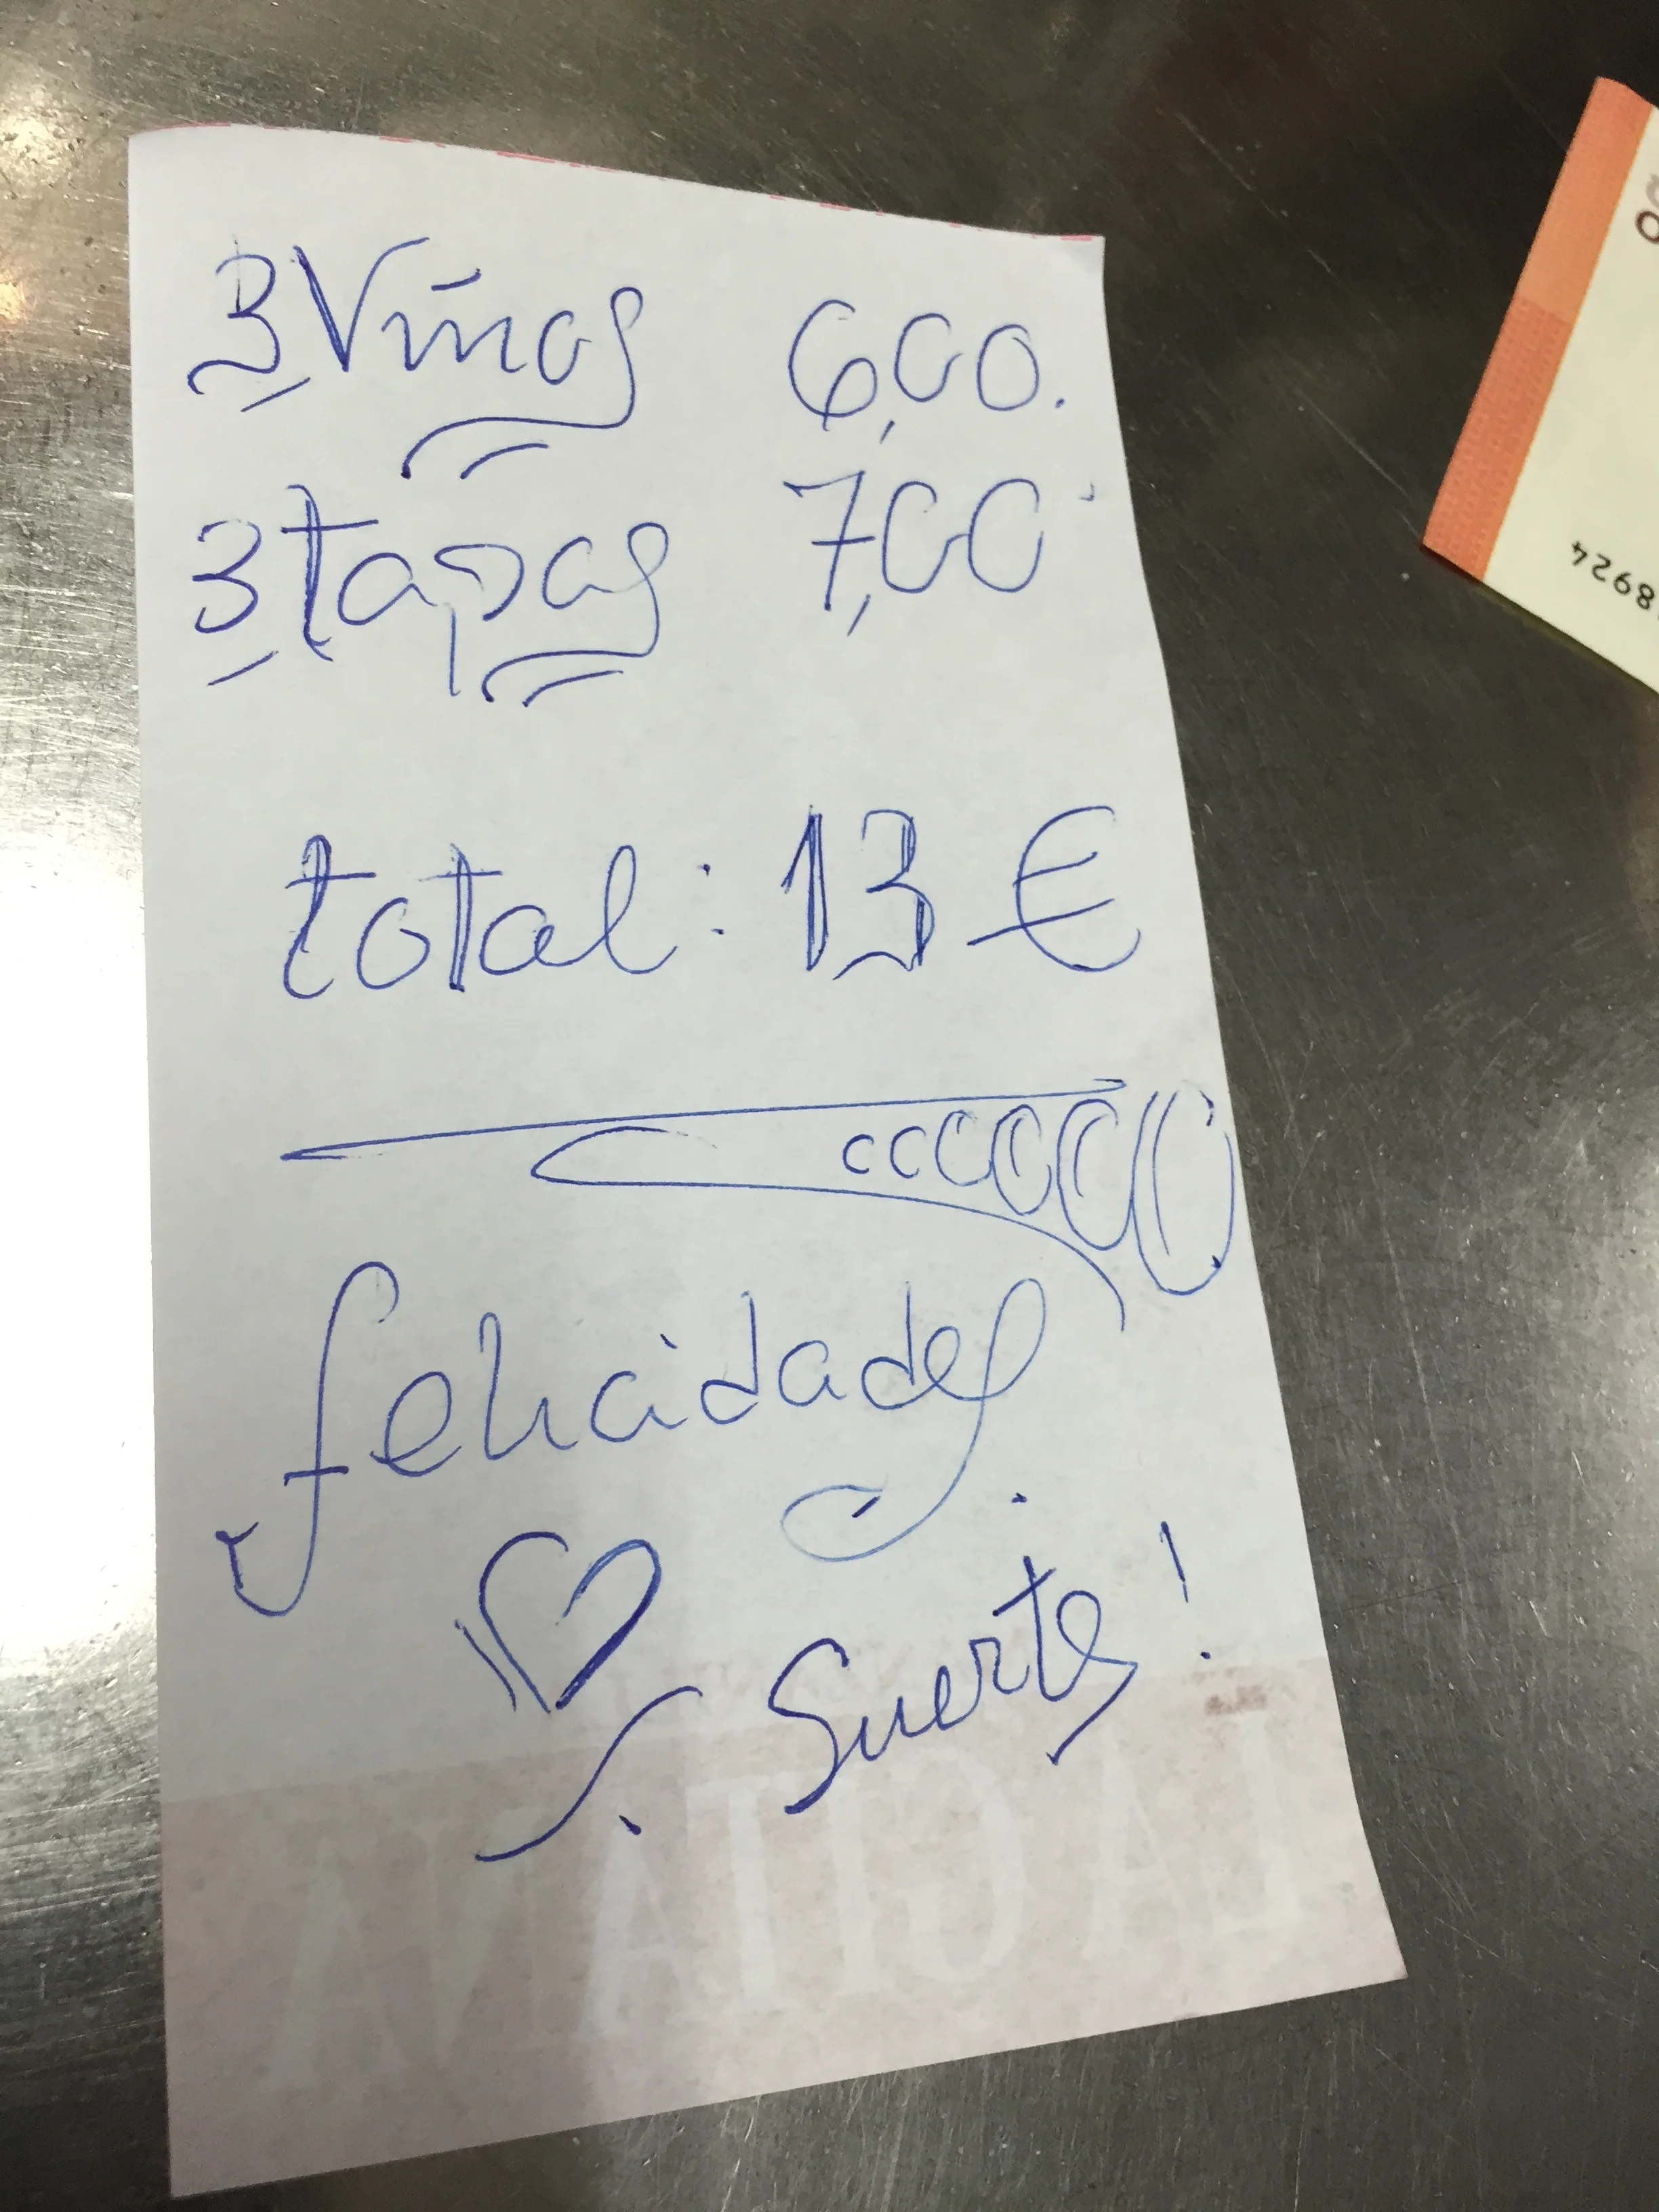 3 Vinos 6,00.
3 tapas 7,00
total: 13 €
felicidades
Suerte!
LA GITANA
8924